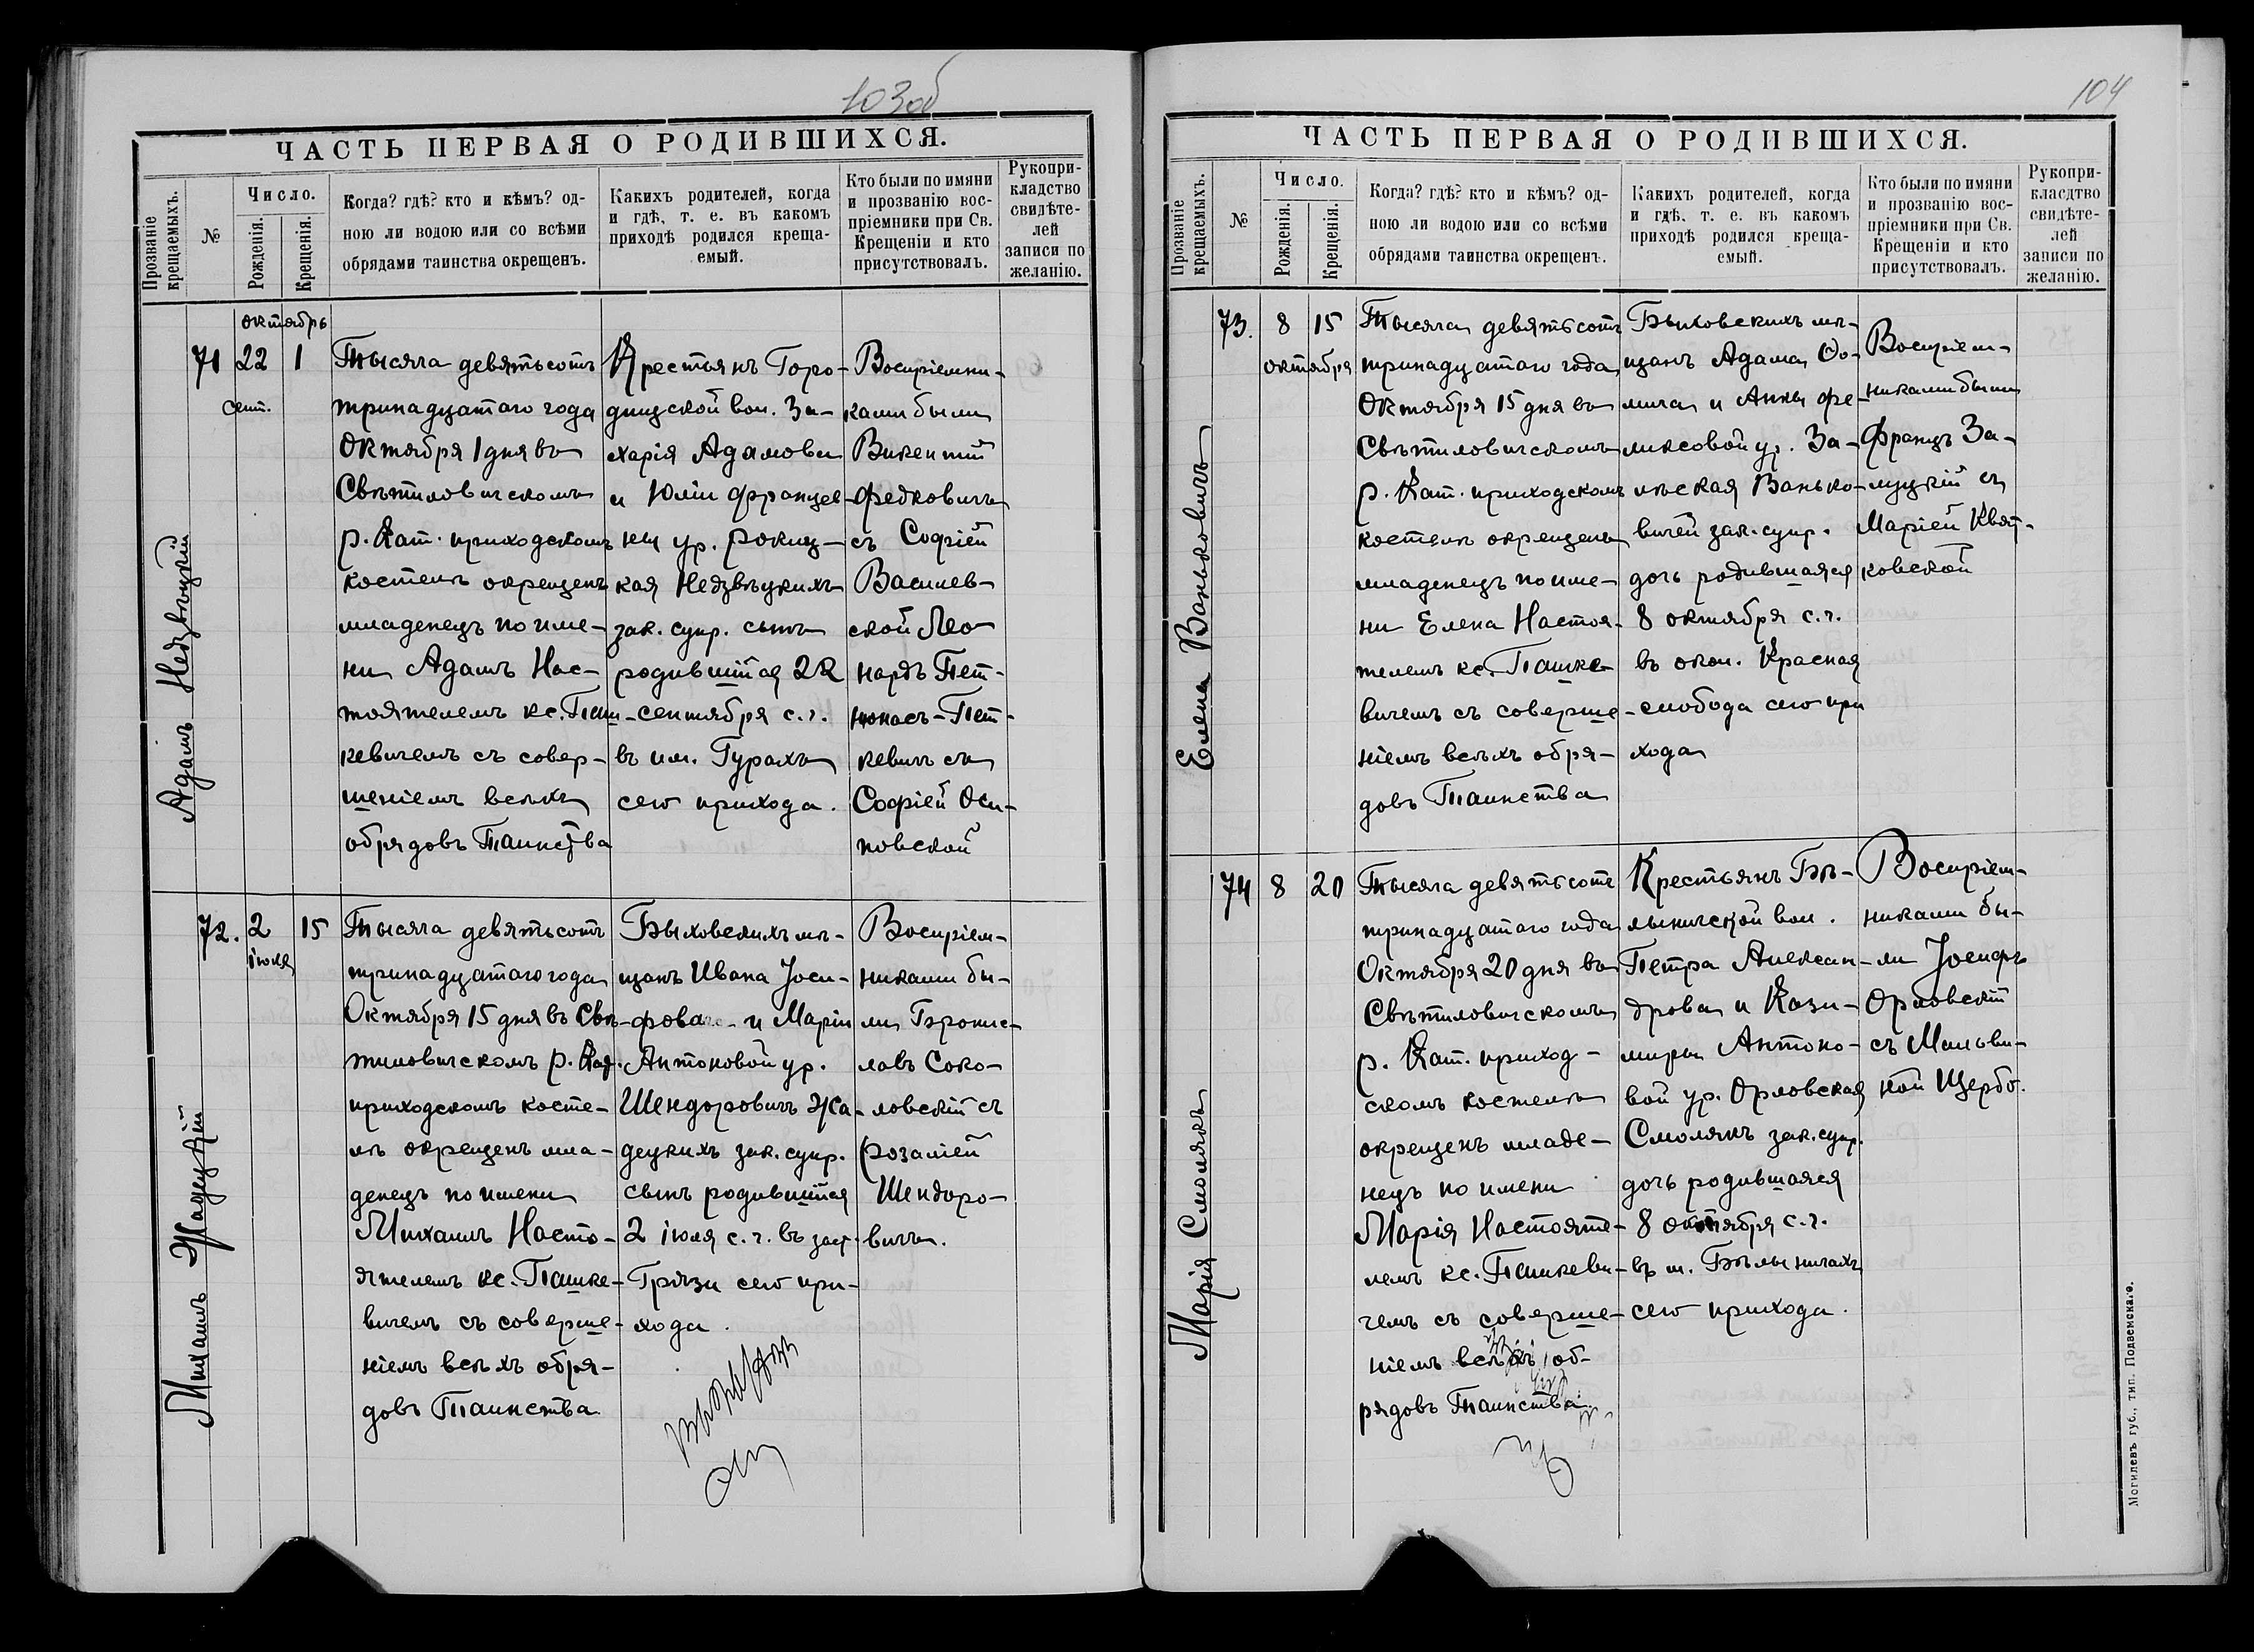 103об
ЧАСТЬ ПЕРВАЯ О РОДИВШИХСЯ.
Прозваніе крещаемыхъ.
№
Число.
Рожденія.
Крещенія.
Когда? гдѣ? кто и кѣмъ? од-
ною ли водою или со всѣми
обрядами таинства окрещенъ.
Какихъ родителей, когда
и гдѣ, т. е. въ какомъ
приходѣ родился креща-
емый.
Кто были по имяни
и прозванію вос-
пріемники при Св.
Крещеніи и кто
присутствовалъ.
Рукопри-
кладство
свидѣте-
лей
записи по
желанію.
Адамъ Недзвѣцкій
октябрь
71 22 1
сент.
Тысяча девятьсотъ
тринадцатаго года
Октября 1 дня въ
Свѣтиловичскомъ
р. Кат. приходскомъ
костелѣ окрещенъ
младенецъ по име-
ни Адамъ Нас-
тоятелемъ кс. Паш-
кевичемъ съ совер-
шеніемъ всѣхъ
обрядовъ Таинства
Крестьянъ Горо-
дищской вол. За-
харія Адамова
и Юліи Францев-
ны ур. Рокиц-
кая Недзвѣцкихъ
зак. супр. сынъ
родившійся 22
сентября с. г.
въ им. Гурахъ
сего прихода.
Воспріемни-
ками были
Викентій
Федковичъ
съ Софіей
Василев-
ской Лео
нардъ Пет-
кевичъ съ
Софіей Оси-
повской
Михаилъ Жадецкій
72. 2 15
іюля
Тысяча девятьсотъ
тринадцатаго года
Октября 15 дня въ Свѣ-
тиловичскомъ р. Кат.
приходскомъ косте-
лѣ окрещенъ мла-
денецъ по имени
Михаилъ Насто-
ятелемъ кс. Пашке-
вичемъ съ соверше-
ніемъ всѣхъ обря-
довъ Таинства
Быховскихъ мѣ-
щанъ Ивана Іоси-
фова и Маріи
Антоновой ур.
Шендоровичъ Жа-
децкихъ зак. супр.
сынъ родившійся
2 іюля с. г. въ заст.
Грязи сего при-
хода.
Воспріем-
никами бы-
ли Бронис-
лавъ Соко-
ловскій съ
Розаліей
Шендоро-
вичъ.
104
ЧАСТЬ ПЕРВАЯ О РОДИВШИХСЯ.
Прозваніе крещаемыхъ.
№
Число.
Рожденія.
Крещенія.
Когда? гдѣ? кто и кѣмъ? од-
ною ли водою или со всѣми
обрядами таинства окрещенъ.
Какихъ родителей, когда
и гдѣ, т. е. въ какомъ
приходѣ родился креща-
емый.
Кто были по имяни
и прозванію вос-
пріемники при Св.
Крещеніи и кто
присутствовалъ.
Рукопри-
класдтво
свидѣте-
лей
записи по
желанію.
Елена Ваньковичъ
73. 8 15
октября
Тысяча девятьсотъ
тринадцатаго года
Октября 15 дня въ
Свѣтиловичскомъ
р. Кат. приходскомъ
костелѣ окрещенъ
младенецъ по име-
ни Елена Настоя-
телемъ кс. Пашке
вичемъ съ соверше-
ніемъ всѣхъ обря-
довъ Таинства
Быховскихъ мѣ-
щанъ Адама Ѳо-
мича и Анны Фе-
ликсовой ур. За-
лѣская Ванько-
вичей зак. супр.
дочь родившаяся
8 октября с. г.
въ окол. Красная
слобода сего при
хода
Воспріем-
никами были
Францъ За-
луцкій съ
Маріей Квят-
ковской
Марія Смолякъ
74 8 20
Тысяча девятьсотъ
тринадцатаго года
Октября 20 дня въ
Свѣтиловичскомъ
р. Кат. приход-
скомъ костелѣ
окрещенъ младе-
нецъ по имени
Марія Настояте-
лемъ кс. Пашкеви-
чемъ съ соверше-
ніемъ всѣхъ об-
рядовъ Таинства
Крестьянъ Бѣ-
лыничской вол.
Петра Алексан-
дрова и Кази-
миры Антоно-
вой ур. Орловская
Смолякъ зак. супр.
дочь родившаяся
8 октября с. г.
въ м. Бѣлыничахъ
сего прихода.
Воспріем-
никами бы-
ли Іосифъ
Орловскій
съ Мальви-
ной Щербо.
Могилевъ губ., тип. Подземскаго.